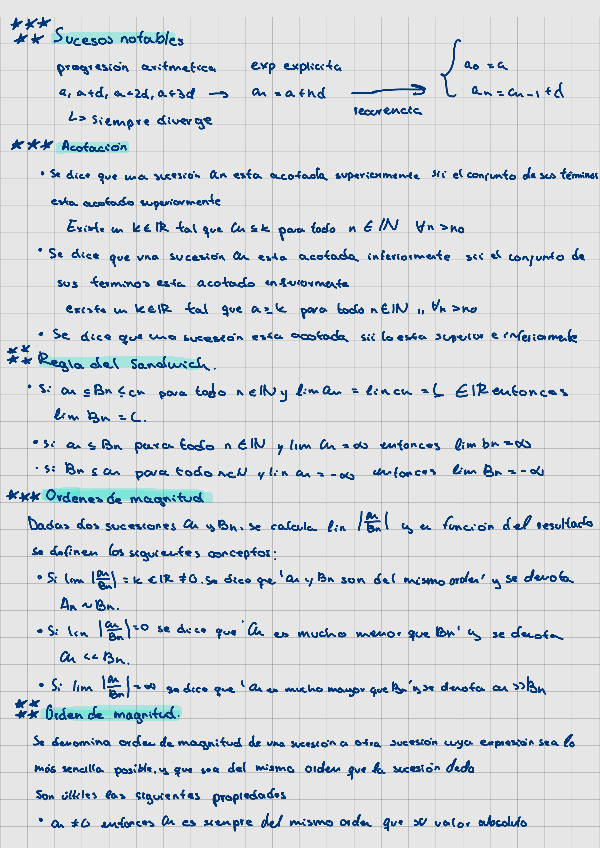 Sucesos notables
progresión aritmetica exp explicita a₀ = a
a, a+d, a+2d, a+3d → an = a+nd → recurrencia an = an-1 + d
↳ siempre diverge
Acotación
• Se dice que una sucesión an esta acotada superiormente sii el conjunto de sus términos
esta acotado superiormente
Existe un k∈IR tal que an ≤ k para todo n ∈ IN ∀n > no
• Se dice que una sucesión an esta acotada inferiormente sii el conjunto de
sus terminos esta acotado inferiormente
existe un k∈IR tal que a ≥ k para todo n∈IN ,, ∀n > no
• Se dice que una sucesión esta acotada sii lo esta superior e inferiormente
Regla del Sandwich.
• Si an ≤ Bn ≤ cn para todo n∈IN y lim an = lim cn = L ∈ IR entonces
lim Bn = L.
• si an ≤ Bn para todo n ∈ IN y lim an = ∞ entonces lim bn = ∞
• si Bn ≤ an para todo n∈N y lim an = -∞ entonces lim Bn = -∞
Ordenes de magnitud
Dadas dos sucesiones an y Bn, se calcula lim |an/Bn| y en función del resultado
se definen los siguientes conceptos:
• Si lim |an/Bn| = k ∈ IR ≠ 0. se dice que 'an y Bn son del mismo orden' y se denota
An ~ Bn.
• Si lim |an/Bn| = 0 se dice que 'an es mucho menor que Bn' y se denota
an << Bn.
• Si lim |an/Bn| = ∞ se dice que 'an es mucho mayor que Bn' y se denota an >> Bn
Orden de magnitud.
Se denomina orden de magnitud de una sucesión a otra sucesión cuya expresión sea lo
más sencilla posible, y que sea del mismo orden que la sucesión dada
Son útiles las siguientes propiedades
• an ≠ 0 entonces an es siempre del mismo orden que su valor absoluto